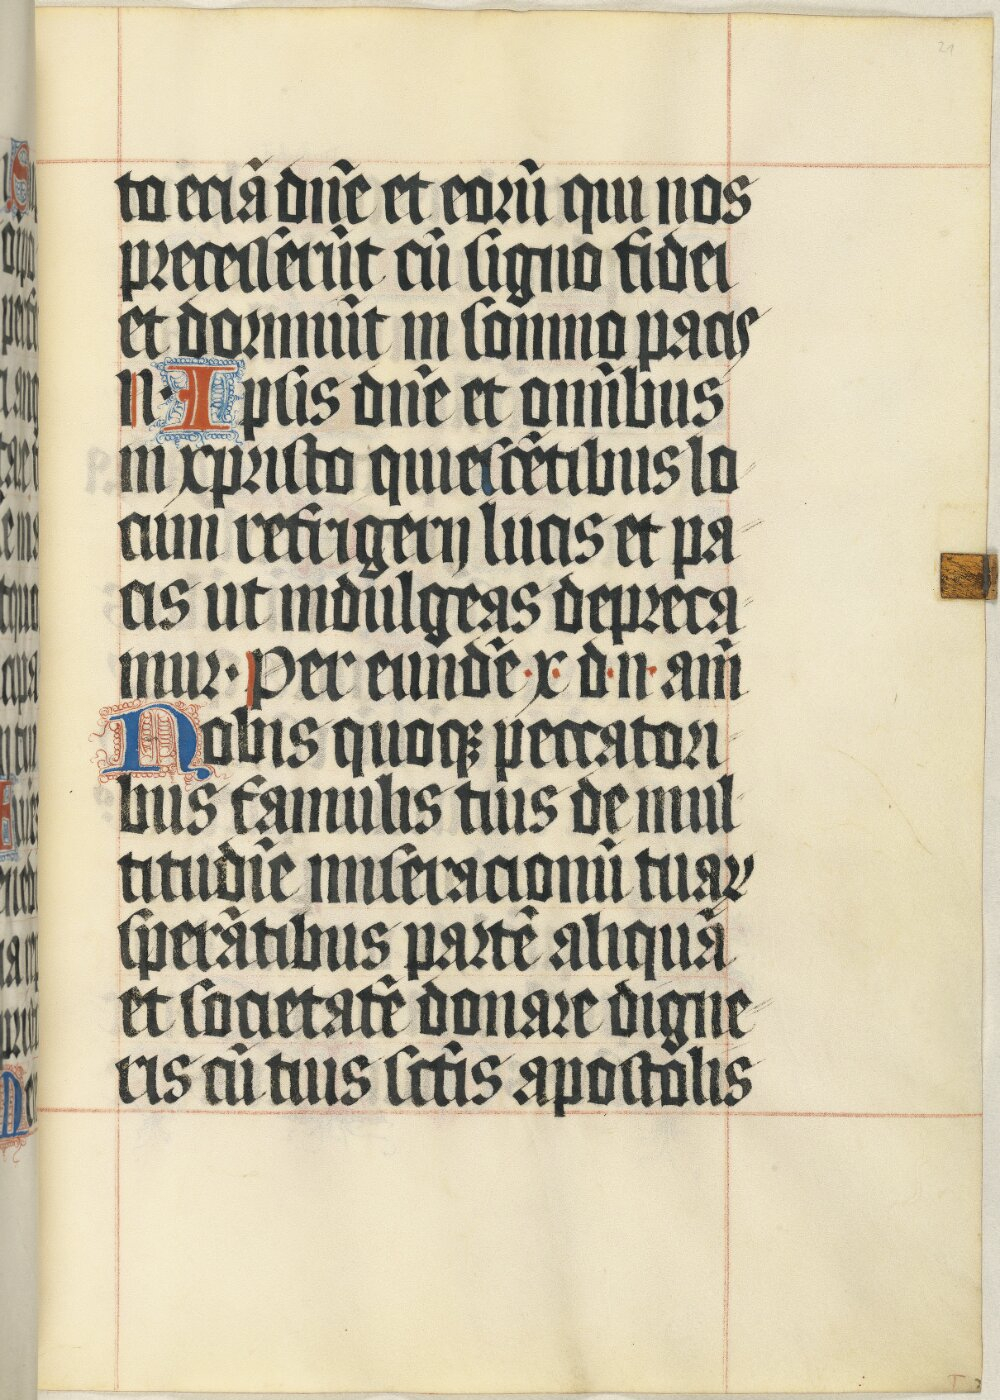 21
to eciā dn̄e et eorū qui nos
precesserūt cū signo fidei
et dormiūt in somno pacis
n· Ipsis dn̄e et omībus
in xpristo quiescētibus lo
cum refrigerij lucis et pa
cis ut indulgeas depreca
mur· Per eundē· x· d·n· am̄
Nobis quoqꝫ peccatori
bus famulis tuis de mul
titudīe miseracionū tuaꝝ
sperātibus partē aliquā
et societatē donare digne
ris cū tuis sctīs apostolis